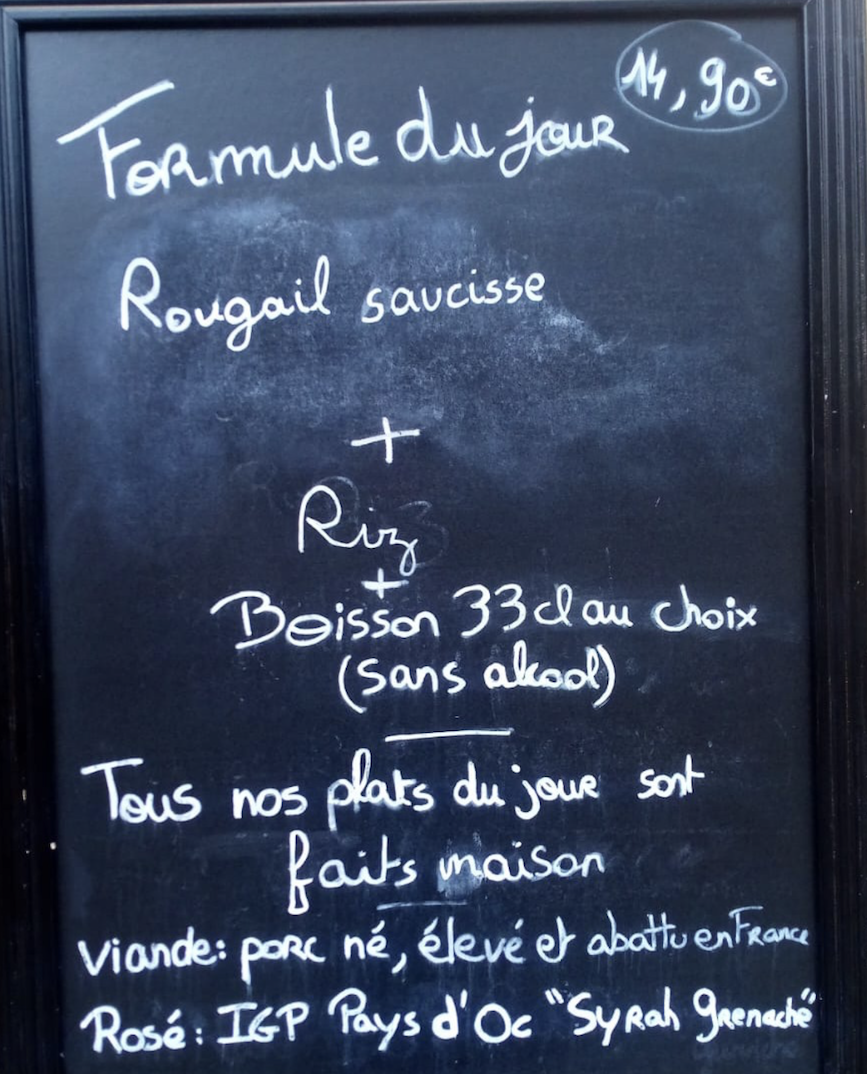 14,90€
Formule du jour
Rougail saucisse
+
Riz
+
Boisson 33cl au choix
(sans alcool)
Tous nos plats du jour sont
faits maison
Viande: porc né, élevé et abattu en France
Rosé: IGP Pays d'Oc "Syrah Grenache"